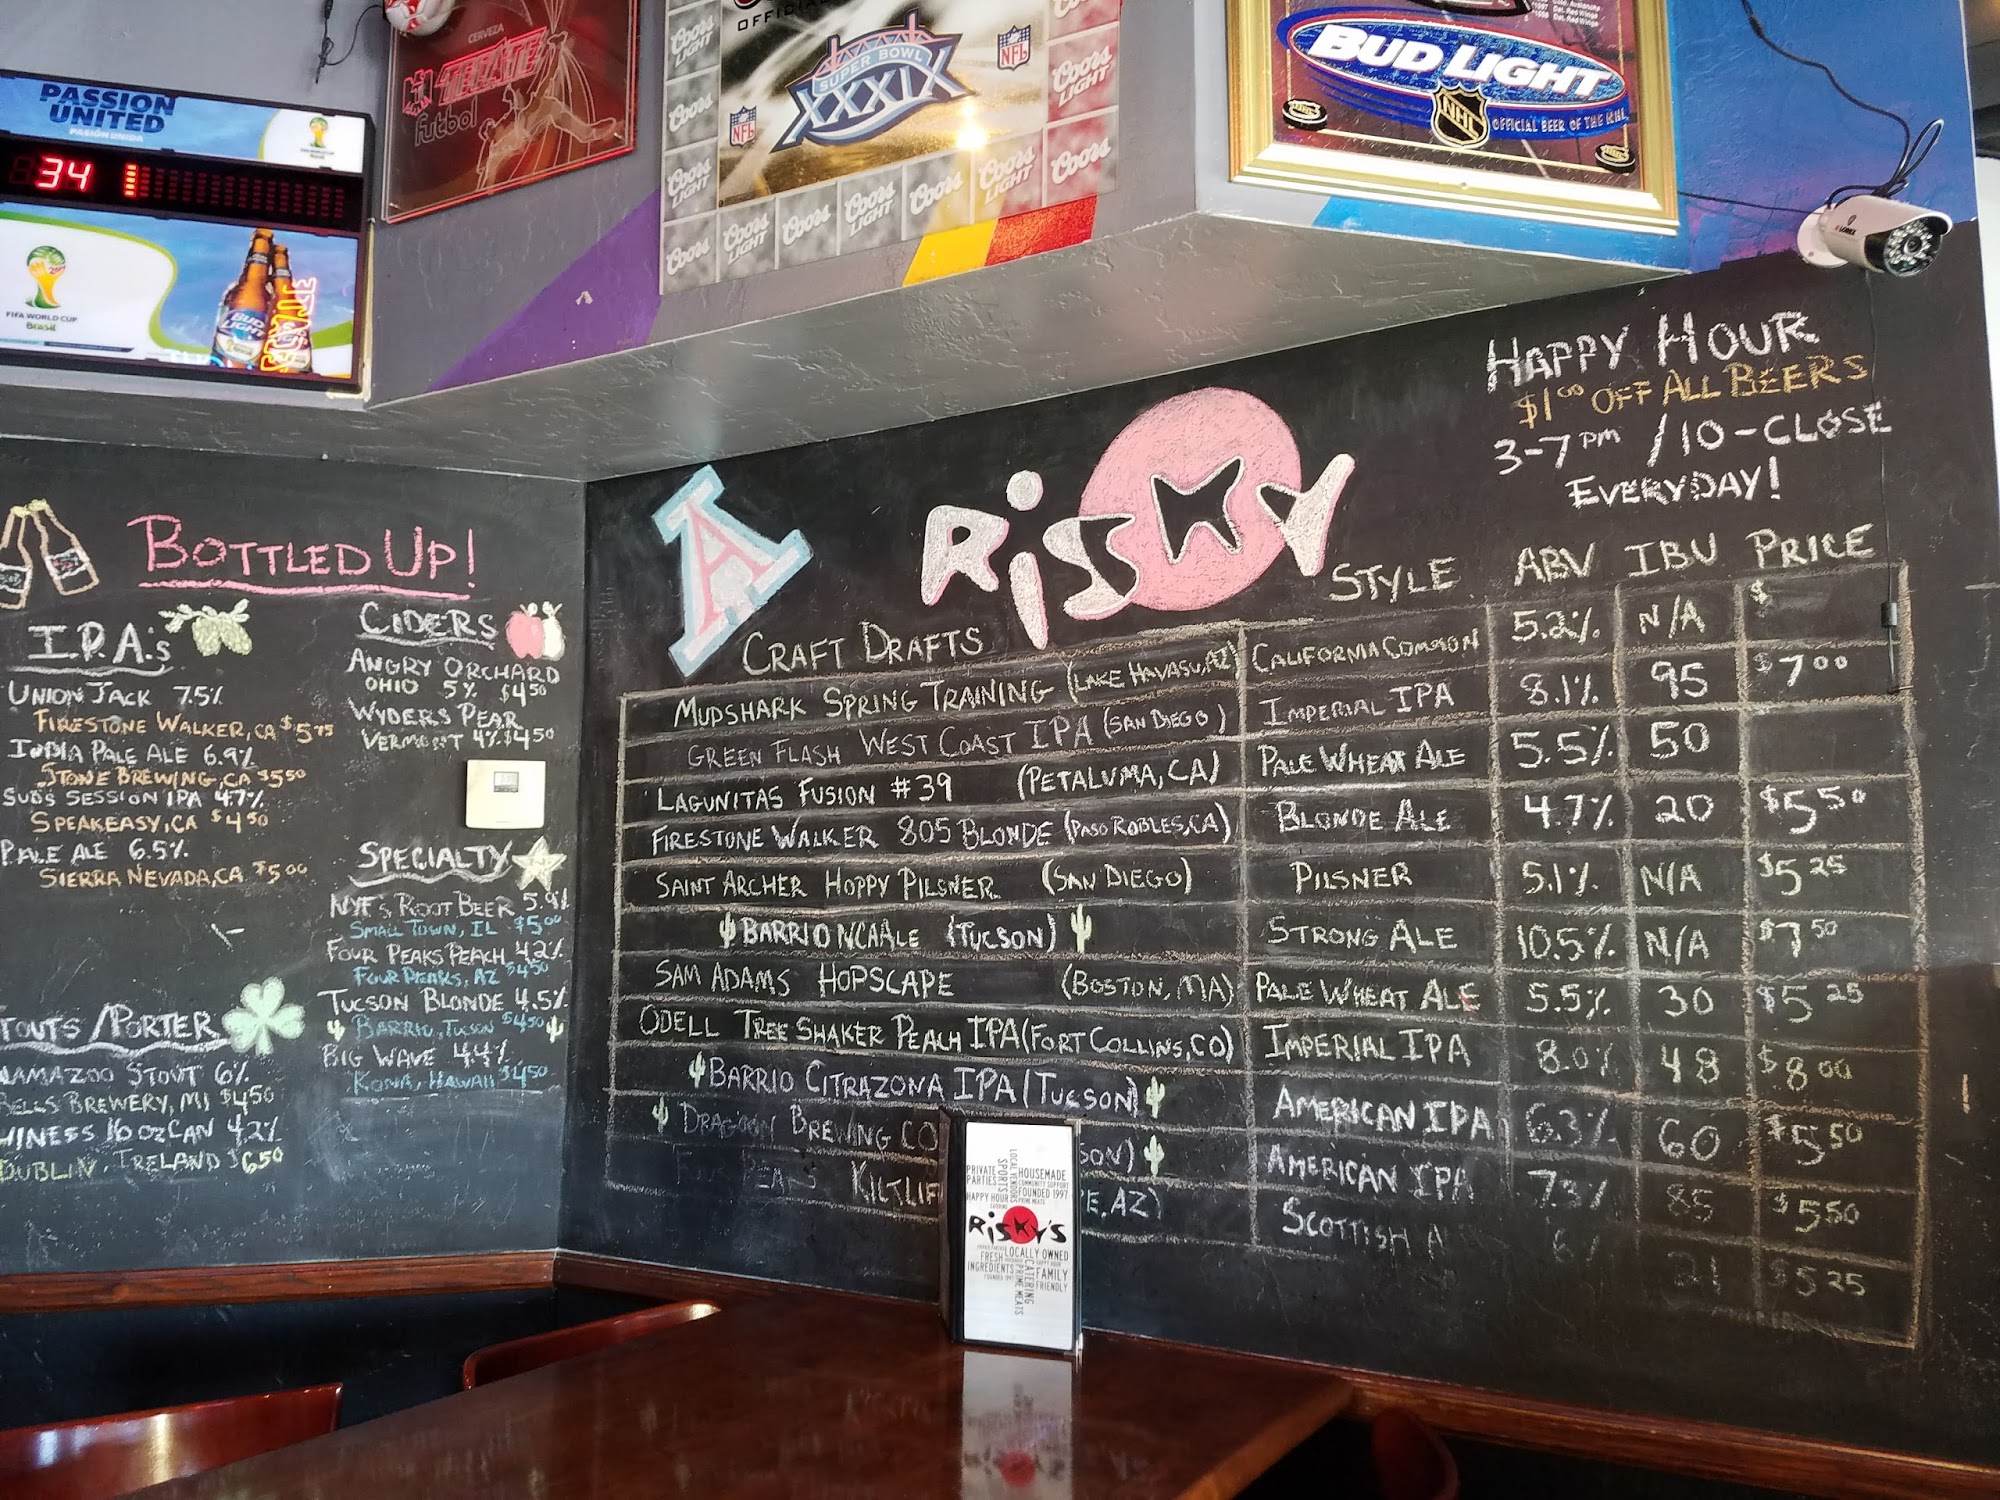 PASSION
UNITED
PASIÓN UNIDA
34
FIFA WORLD CUP
Brasil
BUD
LIGHT
CERVEZA
TECATE
futbol
OFFICIAL
SUPER BOWL
XXXIX
NFL
NFL
Coors
LIGHT
Coors
LIGHT
Coors
Coors
LIGHT
Coors
Coors
LIGHT
Coors
Coors
LIGHT
Coors
BUD LIGHT
NHL
OFFICIAL BEER OF THE NHL
LOREX
HAPPY HOUR
$1.00 OFF ALL BEERS
3-7 PM / 10-CLOSE
EVERYDAY!
BOTTLED UP!
I.P.A.'s
UNION JACK 7.5%
FIRESTONE WALKER, CA $5.75
INDIA PALE ALE 6.9%
STONE BREWING, CA $5.50
SUDS SESSION IPA 4.7%
SPEAKEASY, CA $4.50
PALE ALE 6.5%
SIERRA NEVADA, CA $5.00
TOUTS/PORTER
AMAZOO STOUT 6%
BELLS BREWERY, MI $4.50
INESS 16 OZ CAN 4.2%
DUBLIN, IRELAND $6.50
CIDERS
ANGRY ORCHARD
OHIO 5% $4.50
WYDERS PEAR
VERMONT 4% $4.50
SPECIALTY
NYF'S ROOT BEER 5.9%
SMALL TOWN, IL $5.00
FOUR PEAKS PEACH 4.2%
FOUR PEAKS, AZ $4.50
TUCSON BLONDE 4.5%
BARRIO, TUCSON $4.50
BIG WAVE 4.4%
KONA, HAWAII $4.50
A
RiSKY
CRAFT DRAFTS STYLE ABV IBU PRICE
MUDSHARK SPRING TRAINING (LAKE HAVASU, AZ) CALIFORNIA COMMON 5.2% N/A $
GREEN FLASH WEST COAST IPA (SAN DIEGO) IMPERIAL IPA 8.1% 95 $7.00
LAGUNITAS FUSION #39 (PETALUMA, CA) PALE WHEAT ALE 5.5% 50
FIRESTONE WALKER 805 BLONDE (PASO ROBLES, CA) BLONDE ALE 4.7% 20 $5.50
SAINT ARCHER HOPPY PILSNER (SAN DIEGO) PILSNER 5.1% N/A $5.25
BARRIO NCAALE (TUCSON) STRONG ALE 10.5% N/A $7.50
SAM ADAMS HOPSCAPE (BOSTON, MA) PALE WHEAT ALE 5.5% 30 $5.25
ODELL TREE SHAKER PEACH IPA (FORT COLLINS, CO) IMPERIAL IPA 8.0% 48 $8.00
BARRIO CITRAZONA IPA (TUCSON) AMERICAN IPA 6.3% 60 $5.50
DRAGOON BREWING CO SON) AMERICAN IPA 7.3% 85 $5.50
KILTLIF E, AZ) SCOTTISH A 6% 21 $5.25
PRIVATE
PARTIES
SPORTS
LOCAL VENDORS
HOUSEMADE
COMMUNITY SUPPORT
FOUNDED 1997
HAPPY HOUR
PRIME MEATS
CATERING
RiSKY'S
LOCALLY OWNED
FRESH
INGREDIENTS
FOUNDED 1997
PRIME MEATS
CATERING
HAPPY HOUR
FAMILY
FRIENDLY